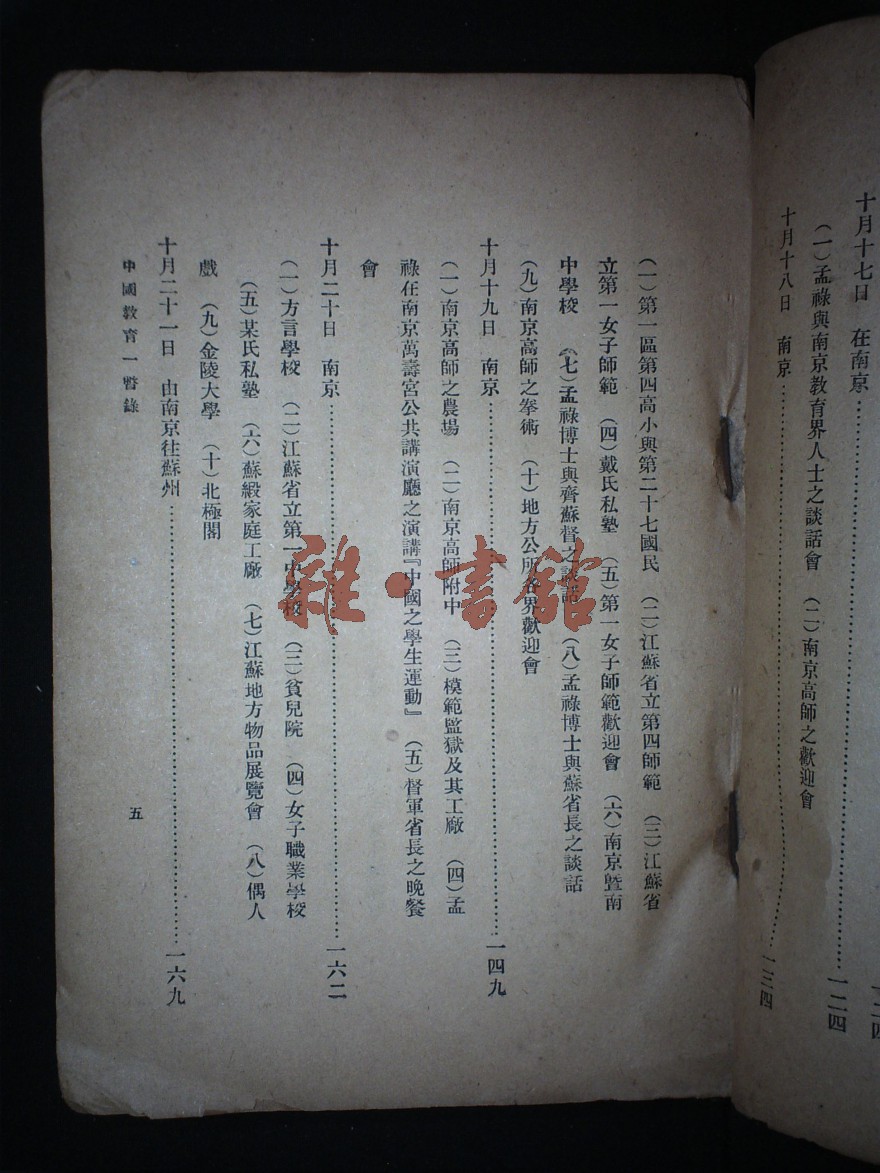 十月十七日　在南京……………一二四
（一）孟祿與南京教育界人士之談話會　（二）南京高師之歡迎會
一二四
十月十八日　南京……………一三四
（一）第一區第四高小與第二十七國民　（二）江蘇省立第四師範　（三）江蘇省
立第一女子師範　（四）戴氏私塾　（五）第一女子師範歡迎會　（六）南京暨南
中學校　（七）孟祿博士與齊蘇督之談話　（八）孟祿博士與蘇省長之談話
（九）南京高師之拳術　（十）地方公所各界歡迎會
十月十九日　南京……………一四九
（一）南京高師之農場　（二）南京高師附中　（三）模範監獄及其工廠　（四）孟
祿在南京萬壽宮公共講演廳之演講『中國之學生運動』　（五）督軍省長之晚餐
會
十月二十日　南京……………一六二
（一）方言學校　（二）江蘇省立第一中學校　（三）貧兒院　（四）女子職業學校
（五）某氏私塾　（六）蘇緞家庭工廠　（七）江蘇地方物品展覽會　（八）偶人
戲　（九）金陵大學　（十）北極閣
十月二十一日　由南京往蘇州……………一六九
中國教育一瞥錄
五
雜·書館